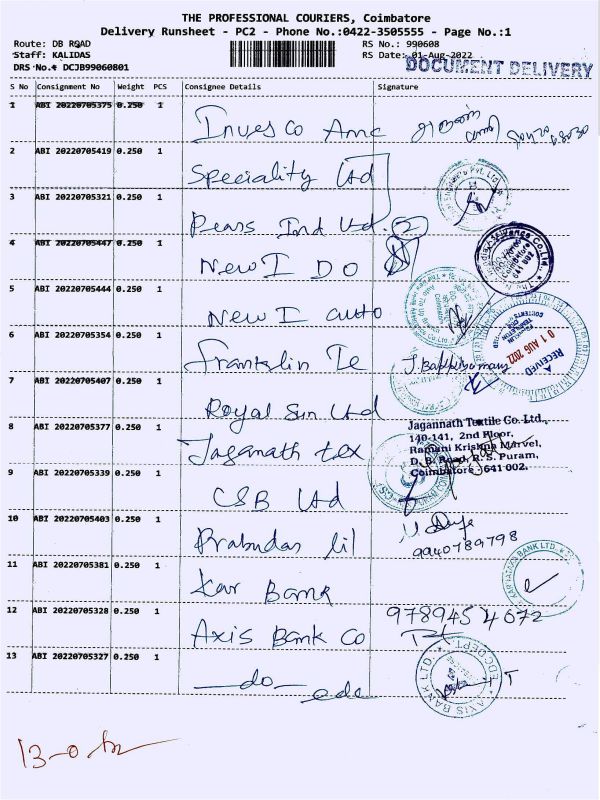 THE PROFESSIONAL COURIERS, Coimbatore
Delivery Runsheet - PC2 - Phone No.:0422-3505555 - Page No.:1
Route: DB ROAD RS No.: 990608
Staff: KALIDAS RS Date: 01-Aug-2022
DRS No.: DCJB99060801 DOCUMENT DELIVERY
S No Consignment No Weight PCS Consignee Details Signature
1 ABI 20220705375 0.250 1
Invesco Amc
2 ABI 20220705419 0.250 1
Speciality Ltd
3 ABI 20220705321 0.250 1
Pears Ind Ltd. 2
4 ABI 20220705447 0.250 1
New I DO
5 ABI 20220705444 0.250 1
New I auto
RECEIVED
01 AUG 2022
6 ABI 20220705354 0.250 1
Franklin Te
7 ABI 20220705407 0.250 1
Royal Sun Ltd
Jagannath Textile Co. Ltd.,
140-141, 2nd Floor,
Ramani Krishna Marvel,
D. B. Road, R. S. Puram,
Coimbatore - 641 002.
8 ABI 20220705377 0.250 1
Jaganath tex
9 ABI 20220705339 0.250 1
CSB Ltd
10 ABI 20220705403 0.250 1
Prabudas lil
9940789798
11 ABI 20220705381 0.250 1
Kar Bank
KARNATAKA BANK LTD.
12 ABI 20220705328 0.250 1
9789454672
Axis Bank Co
13 ABI 20220705327 0.250 1
do
AXIS BANK LTD.